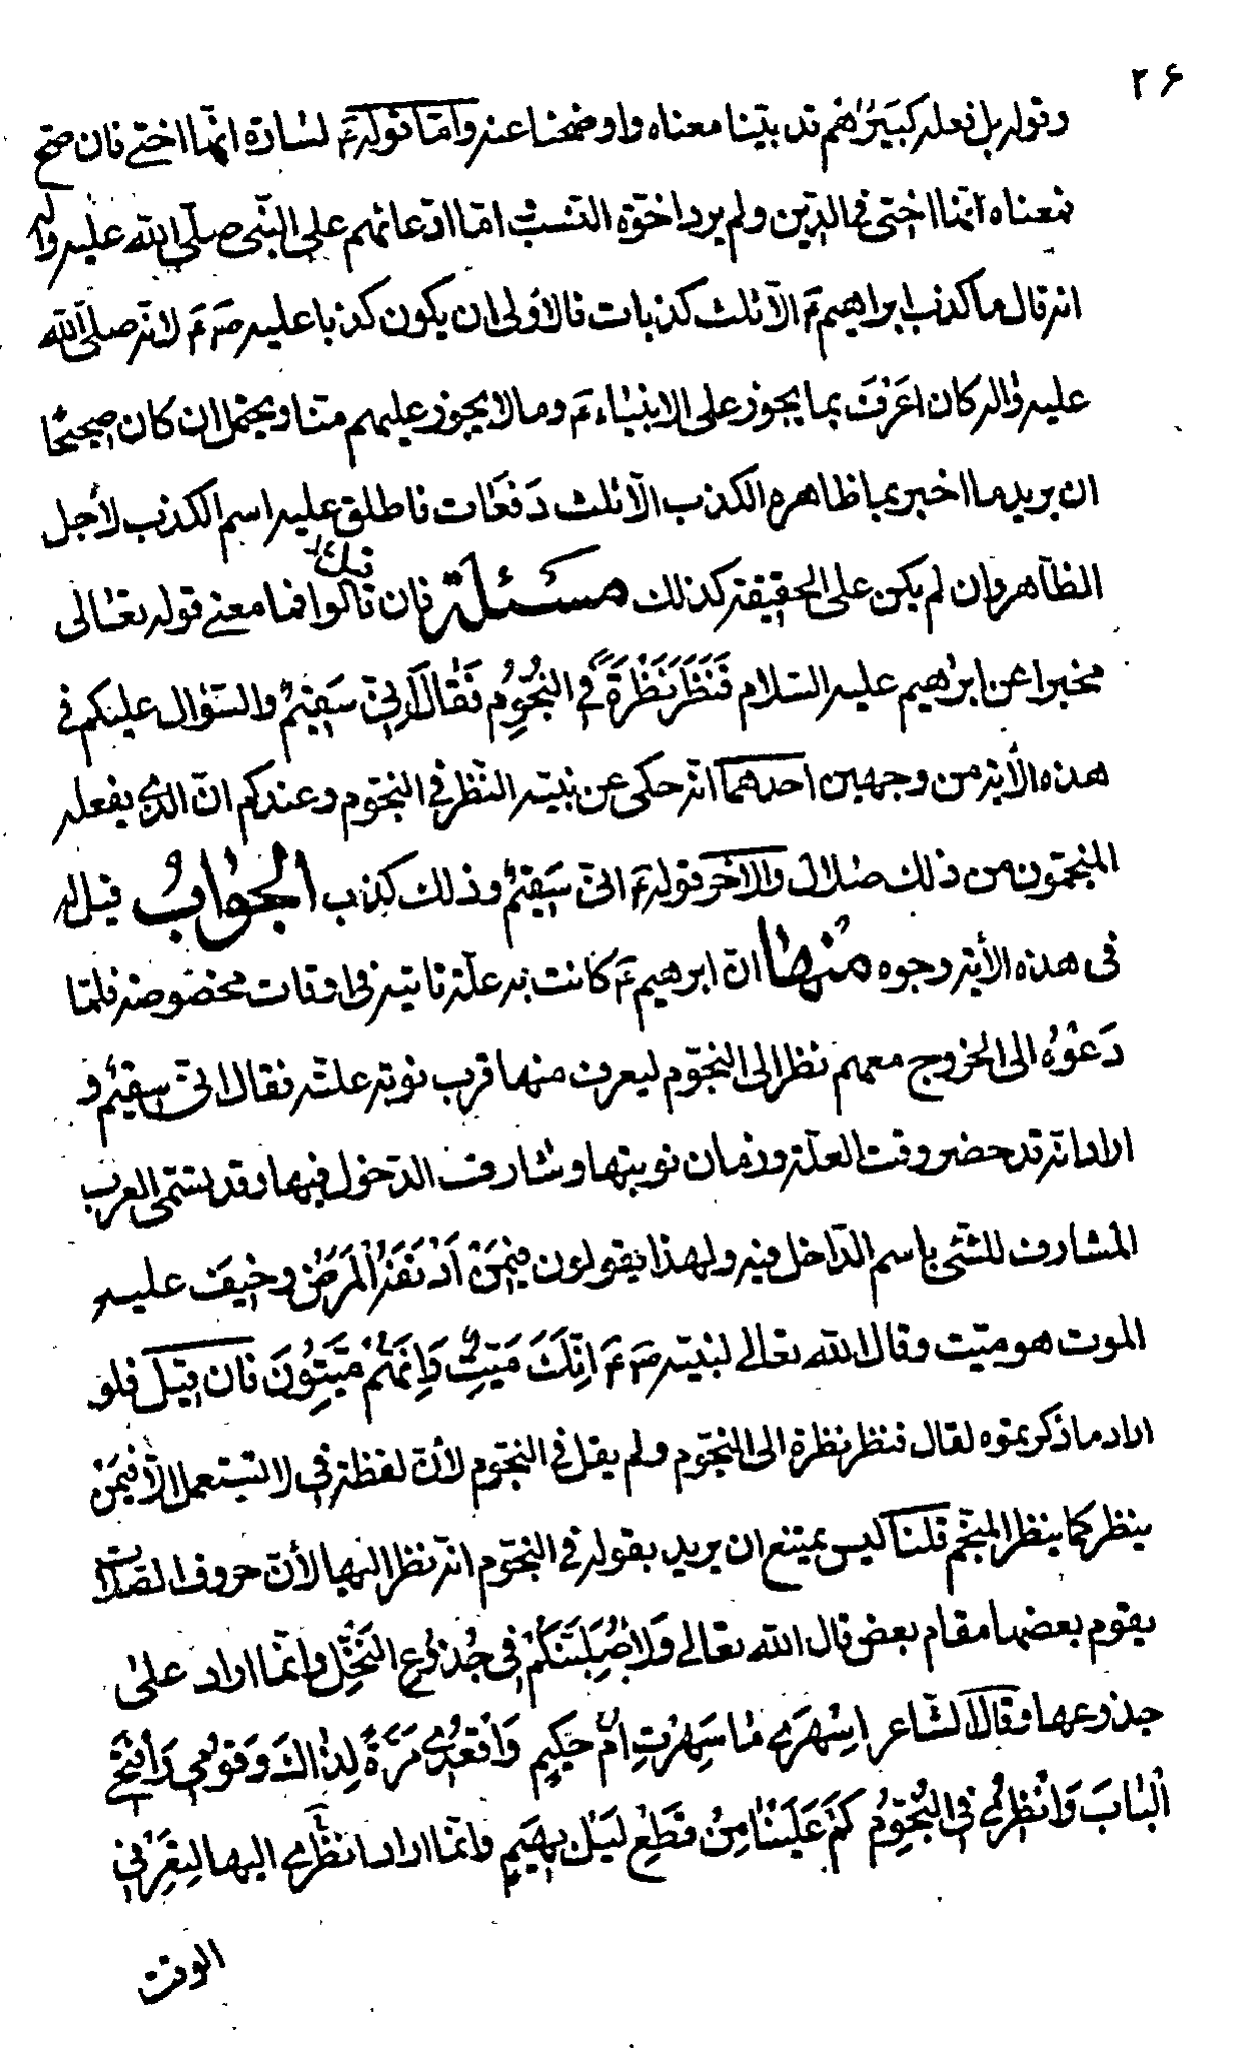 ٢۶
وقوله بل فعله كبيرهم قد بيّنا معناه واوضحنا عنه وامّا قوله ع لسارة انّها اختى فان صحّ
فمعناه انّها اختى فى الدّين ولم يرد اخوّة النّسب امّا ادّعائهم على النّبى صلّى الله عليه واله
انه قال ما كذب ابراهيم ع الّا ثلث كذبات فالاولى ان يكون كذبا عليه ص ع لانّه صلى الله
عليه واله كان اعرف بما يجوز على الانبياء ع وما لا يجوز عليهم منّا ويحتمل ان كان صحيحًا
ان يريد ما اخبر بما ظاهره الكذب الّا ثلث دفعات فاطلق عليه اسم الكذب لأجل
الظّاهر وان لم يكن على الحقيقة كذلك مسئلة فان قالوا فما معنى قوله تعالى
مخبرا عن ابرهيم عليه السّلام فَنَظَرَ نَظْرَةً فِي النُّجُومِ فَقَالَ اِنّي سَقِيمٌ والسّؤال عليكم فى
هذه الأية من وجهين احدهما انّه حكى عن نبيّه النّظر فى النجّوم وعندكم انّ الذى يفعله
المنجّمون من ذلك ضلال والاخر قوله ع انّى سَقِيمٌ وذلك كذب الجواب قيل له
فى هذه الأية وجوه منها انّ ابرهيم ع كانت به علّة تاتيه فى اوقات مخصوصة فلمّا
دَعَوْهُ الى الخروج معهم نظر الى النجّوم ليعرف منها قرب نوبة علّته فقال انّى سقيمٌ و
اراد انّه قد حضر وقت العلّة وزمان نوبتها وشارف الدّخول فيها وقد يسمّى العرب
المشارف للشّئ باسم الدّاخل فيه ولهذا يقولون فيمَنْ اَدْنَفَهُ الْمَرَضُ وخيف عليه
الموت هو ميّت وقال الله تعالى لنبيّه ص ع اِنَّكَ مَيِّتٌ وَاِنَّهُمْ مَيِّتُونَ فان قيل فلو
اراد ما ذكرتموه لقال فنظر نظرة الى النجّوم ولم يقل فى النجّوم لأنّ لفظة فى لا تستعمل الّا فيمَنْ
ينظر كما ينظر المنجّم قلنا ليس يمتنع ان يريد بقوله فى النجّوم انّه نظر اليها لأنّ حروف الصّلات
يقوم بعضها مقام بعض قال الله تعالى وَلَاُصَلِّبَنَّكُمْ فِى جُذُوعِ النَّخْلِ وانّما اراد على
جذوعها وقال الشّاعر اِسْهَرى مَا سَهِرْتِ اُمَّ حَكِيمٍ وَاقْعُدى مَرَةً لِذَاكَ وَقوُمى وَافْتَحى
الْبَابَ وَانْظُرى فِى النُّجُومِ كَمْ عَلَيْنَا مِنْ قِطَعِ لَيْلٍ بَهِيمٍ وانّما اراد انظرى اليها لِتَعْرِفى
الوقت